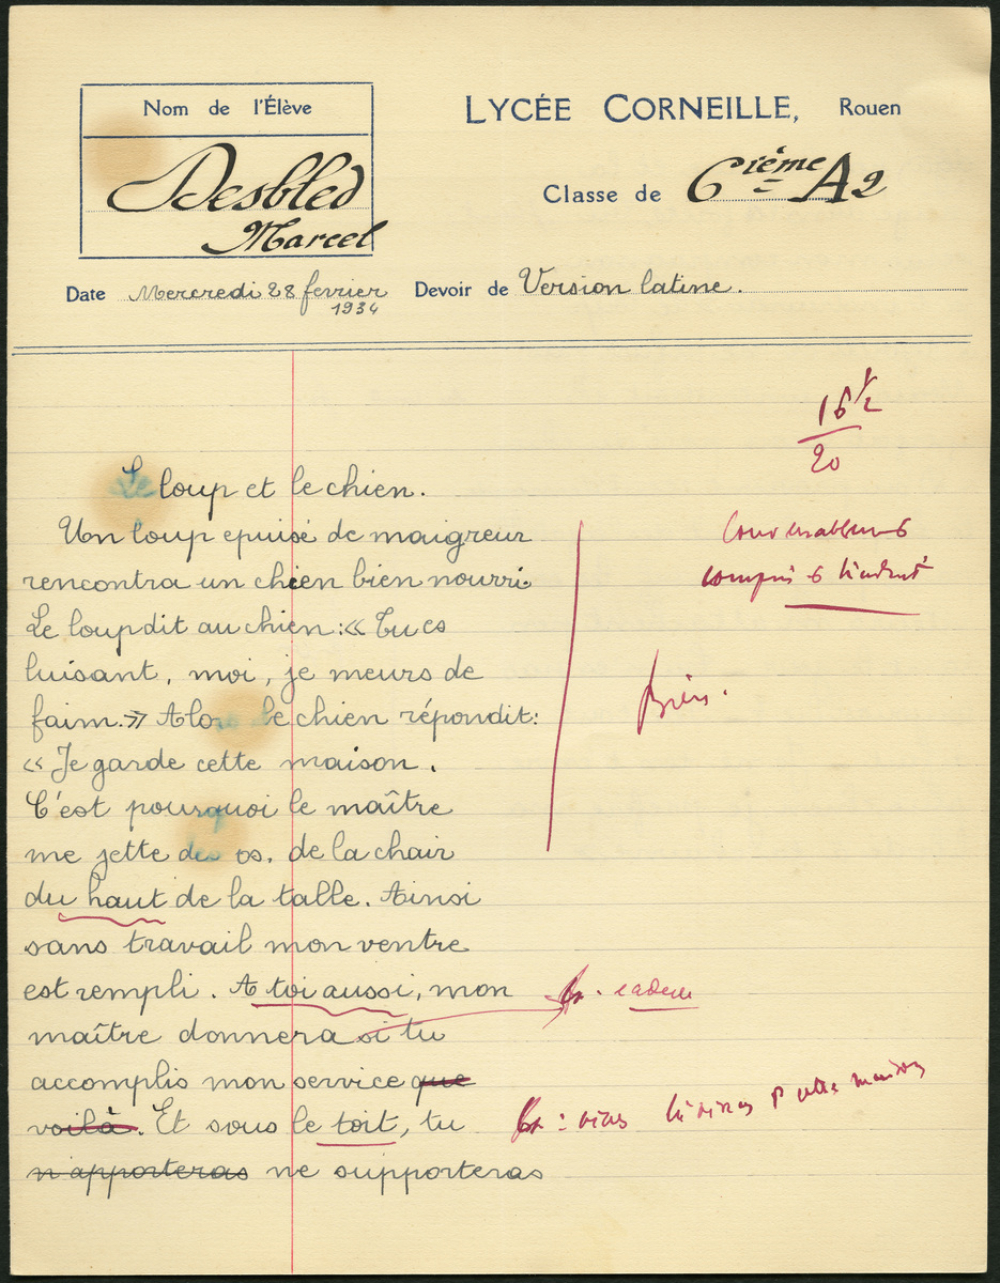 Nom de l'Élève
LYCÉE CORNEILLE, Rouen
Desbled
Marcel
Classe de 6ième A2
Date Mercredi 28 fevrier
1934
Devoir de Version latine.
16 1/2
20
Le loup et le chien.
Un loup epuisé de maigreur
rencontra un chien bien nourri.
Le loup dit au chien : « Tu es
luisant, moi, je meurs de
faim. » Alors le chien répondit :
« Je garde cette maison.
C'est pourquoi le maître
me jette des os, de la chair
du haut de la talle. Ainsi
sans travail mon ventre
est rempli. A toi aussi, mon
maître donnera si tu
accomplis mon service que
voilà. Et sous le toit, tu
n'apporteras ne supporteras
compris et
Bien.
eadem